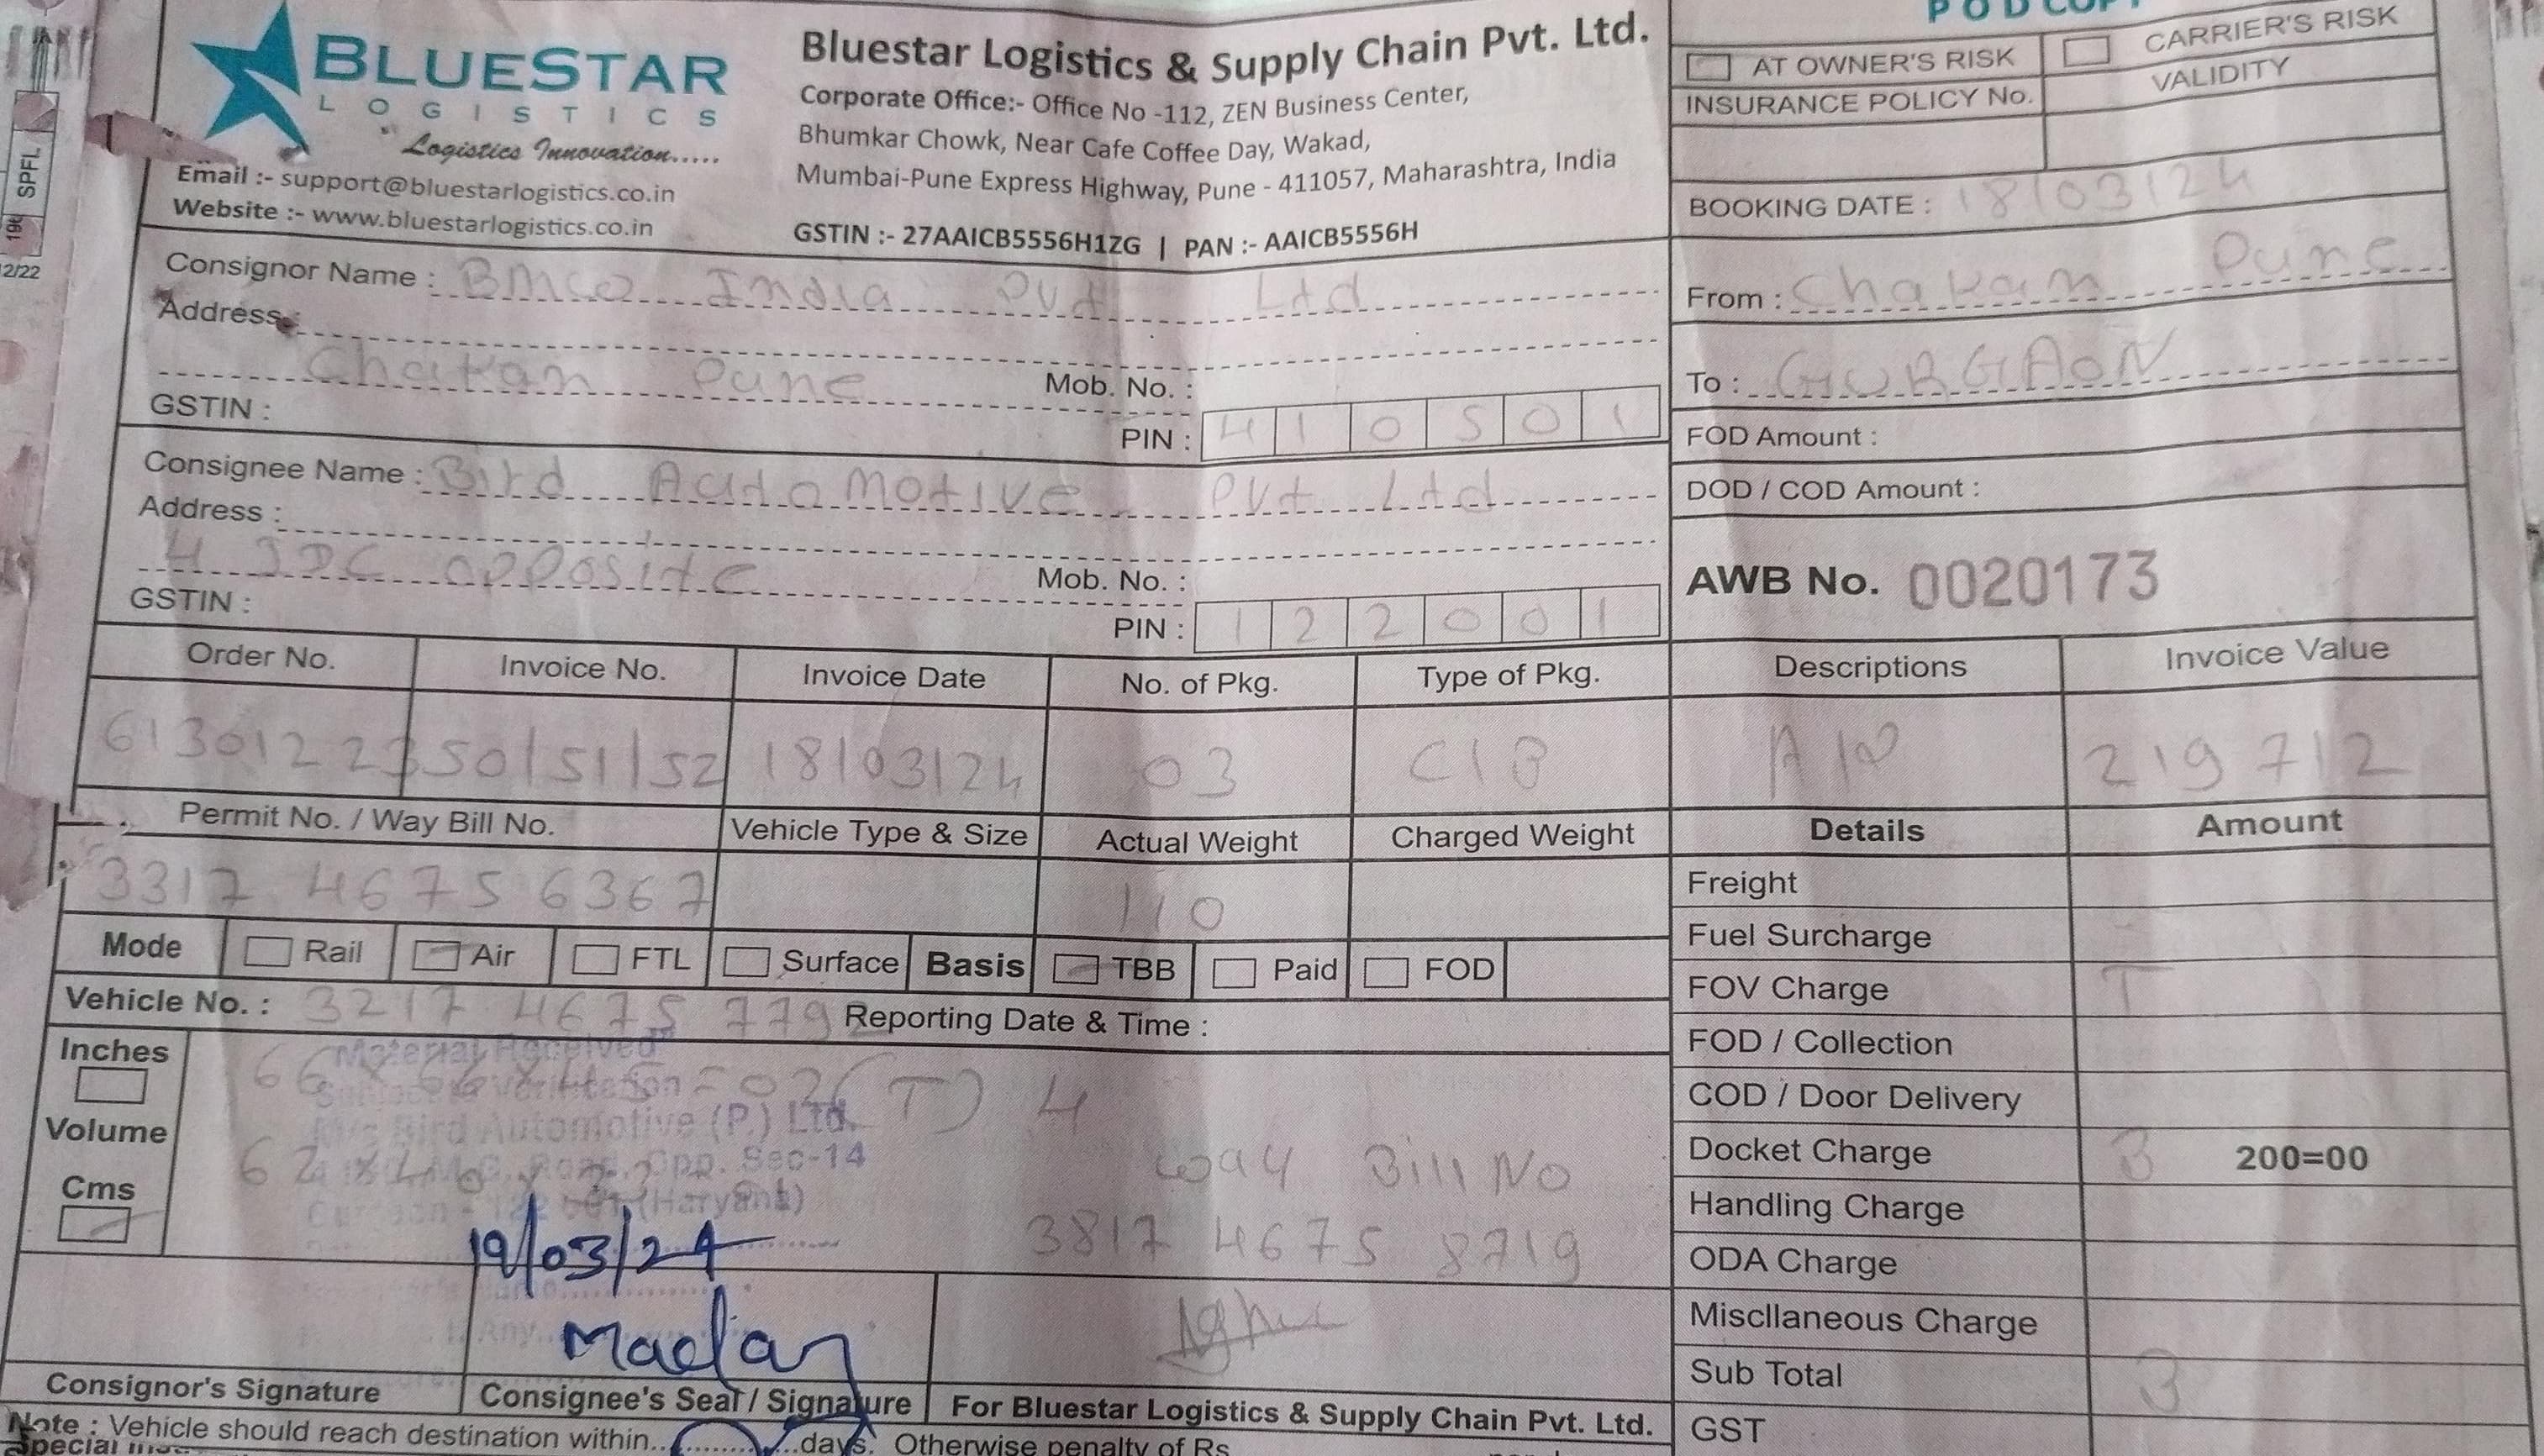 POD COPY
BLUESTAR
LOGISTICS
Logistics Innovation.....
Email :- support@bluestarlogistics.co.in
Website :- www.bluestarlogistics.co.in
Bluestar Logistics & Supply Chain Pvt. Ltd.
Corporate Office:- Office No -112, ZEN Business Center,
Bhumkar Chowk, Near Cafe Coffee Day, Wakad,
Mumbai-Pune Express Highway, Pune - 411057, Maharashtra, India
GSTIN :- 27AAICB5556H1ZG | PAN :- AAICB5556H
AT OWNER'S RISK CARRIER'S RISK
INSURANCE POLICY No. VALIDITY
BOOKING DATE : 18/03/24
SPFL
2/22
Consignor Name : India Pvt Ltd
Address
Chakan Pune Mob. No. :
GSTIN :
PIN : 410501
From : Chakan Pune
To : GURGAON
FOD Amount :
DOD / COD Amount :
Consignee Name : Bird Automotive Pvt Ltd
Address :
4 IDC opposite Mob. No. :
GSTIN :
PIN : 122001
AWB No. 0020173
Order No. Invoice No. Invoice Date No. of Pkg. Type of Pkg. Descriptions Invoice Value
613012 2350/51/52 18/03/24 03 C/B A/P 219712
Permit No. / Way Bill No. Vehicle Type & Size Actual Weight Charged Weight Details Amount
3317 4675 6367 110
Freight
Fuel Surcharge
FOV Charge T
FOD / Collection
COD / Door Delivery
Docket Charge B 200=00
Handling Charge
ODA Charge
Miscllaneous Charge
Sub Total B
GST
Mode Rail Air FTL Surface Basis TBB Paid FOD
Vehicle No. : 3217 4675 7792 Reporting Date & Time :
Inches
Volume
Cms
Material Received
Bird Automotive (P.) Ltd.
Opp. Sec-14
(Haryana)
(T) 4
Way Bill No
3817 4675 8719
19/03/24
Madan
Consignor's Signature Consignee's Seal / Signature For Bluestar Logistics & Supply Chain Pvt. Ltd.
Note : Vehicle should reach destination within..........days. Otherwise penalty of Rs